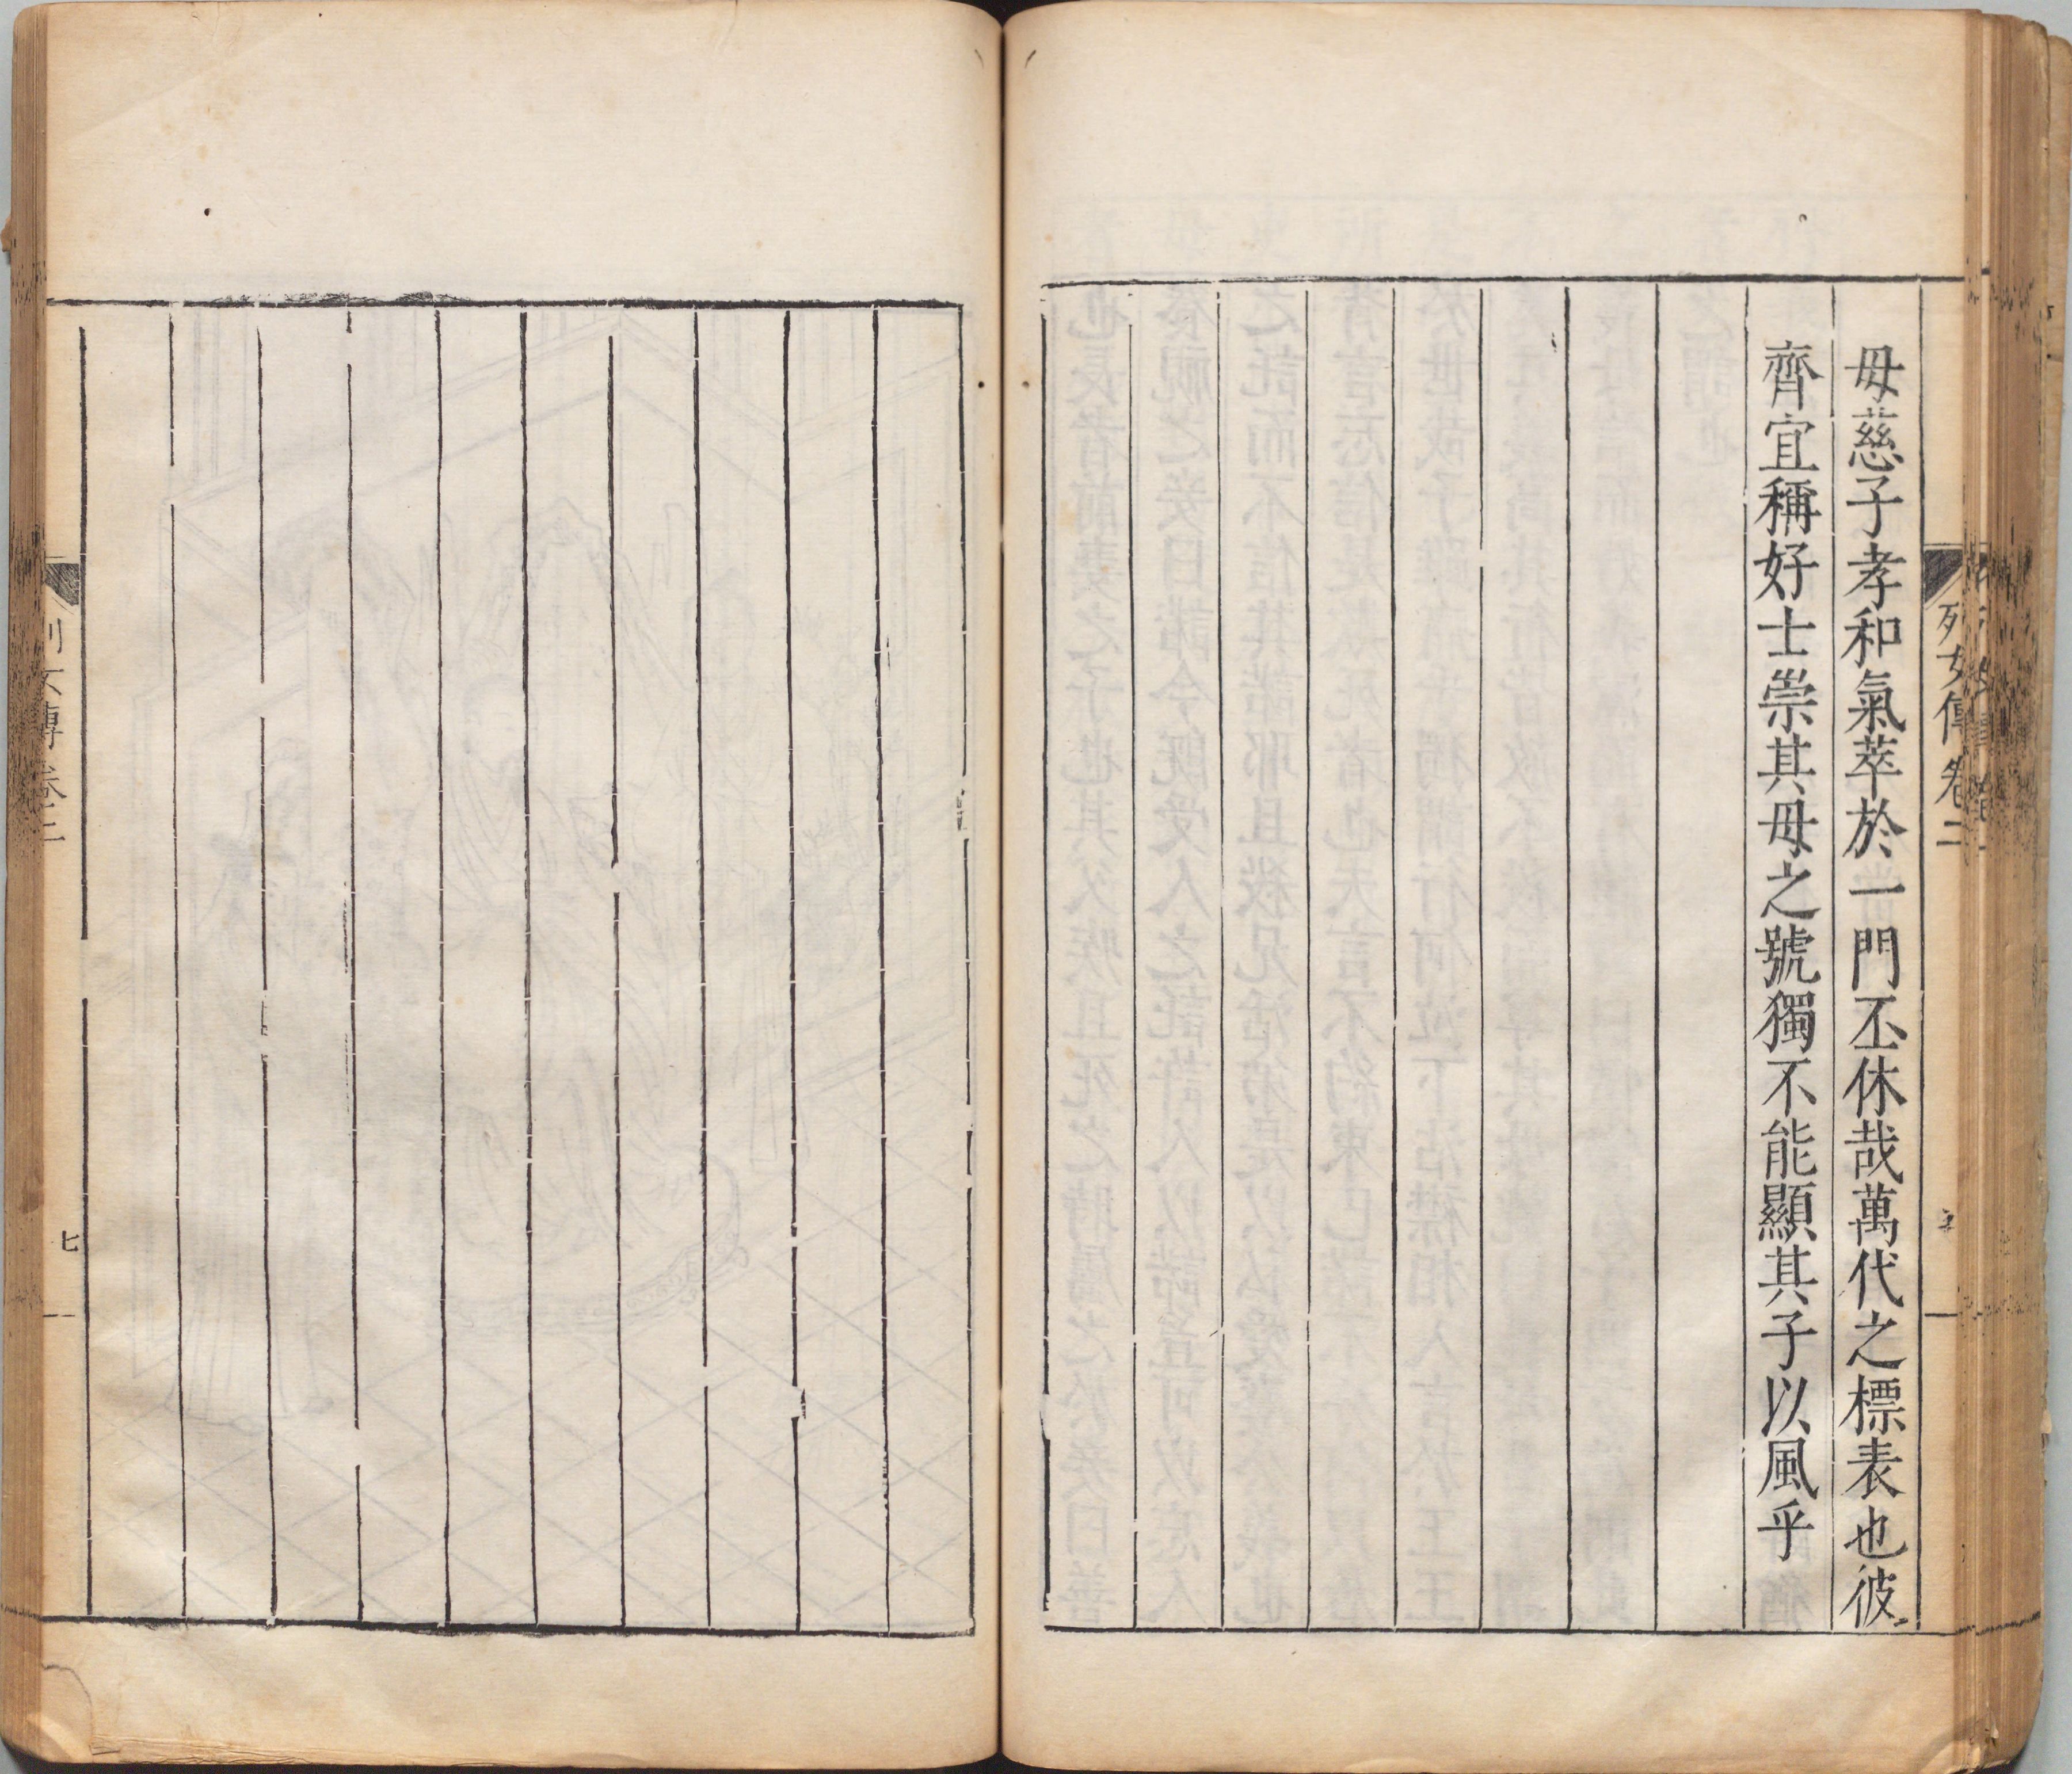 列女傳卷二
母慈子孝和氣萃於一門丕休哉萬代之標表也彼
齊宜稱好士崇其母之號獨不能顯其子以風乎
列女傳卷二
七